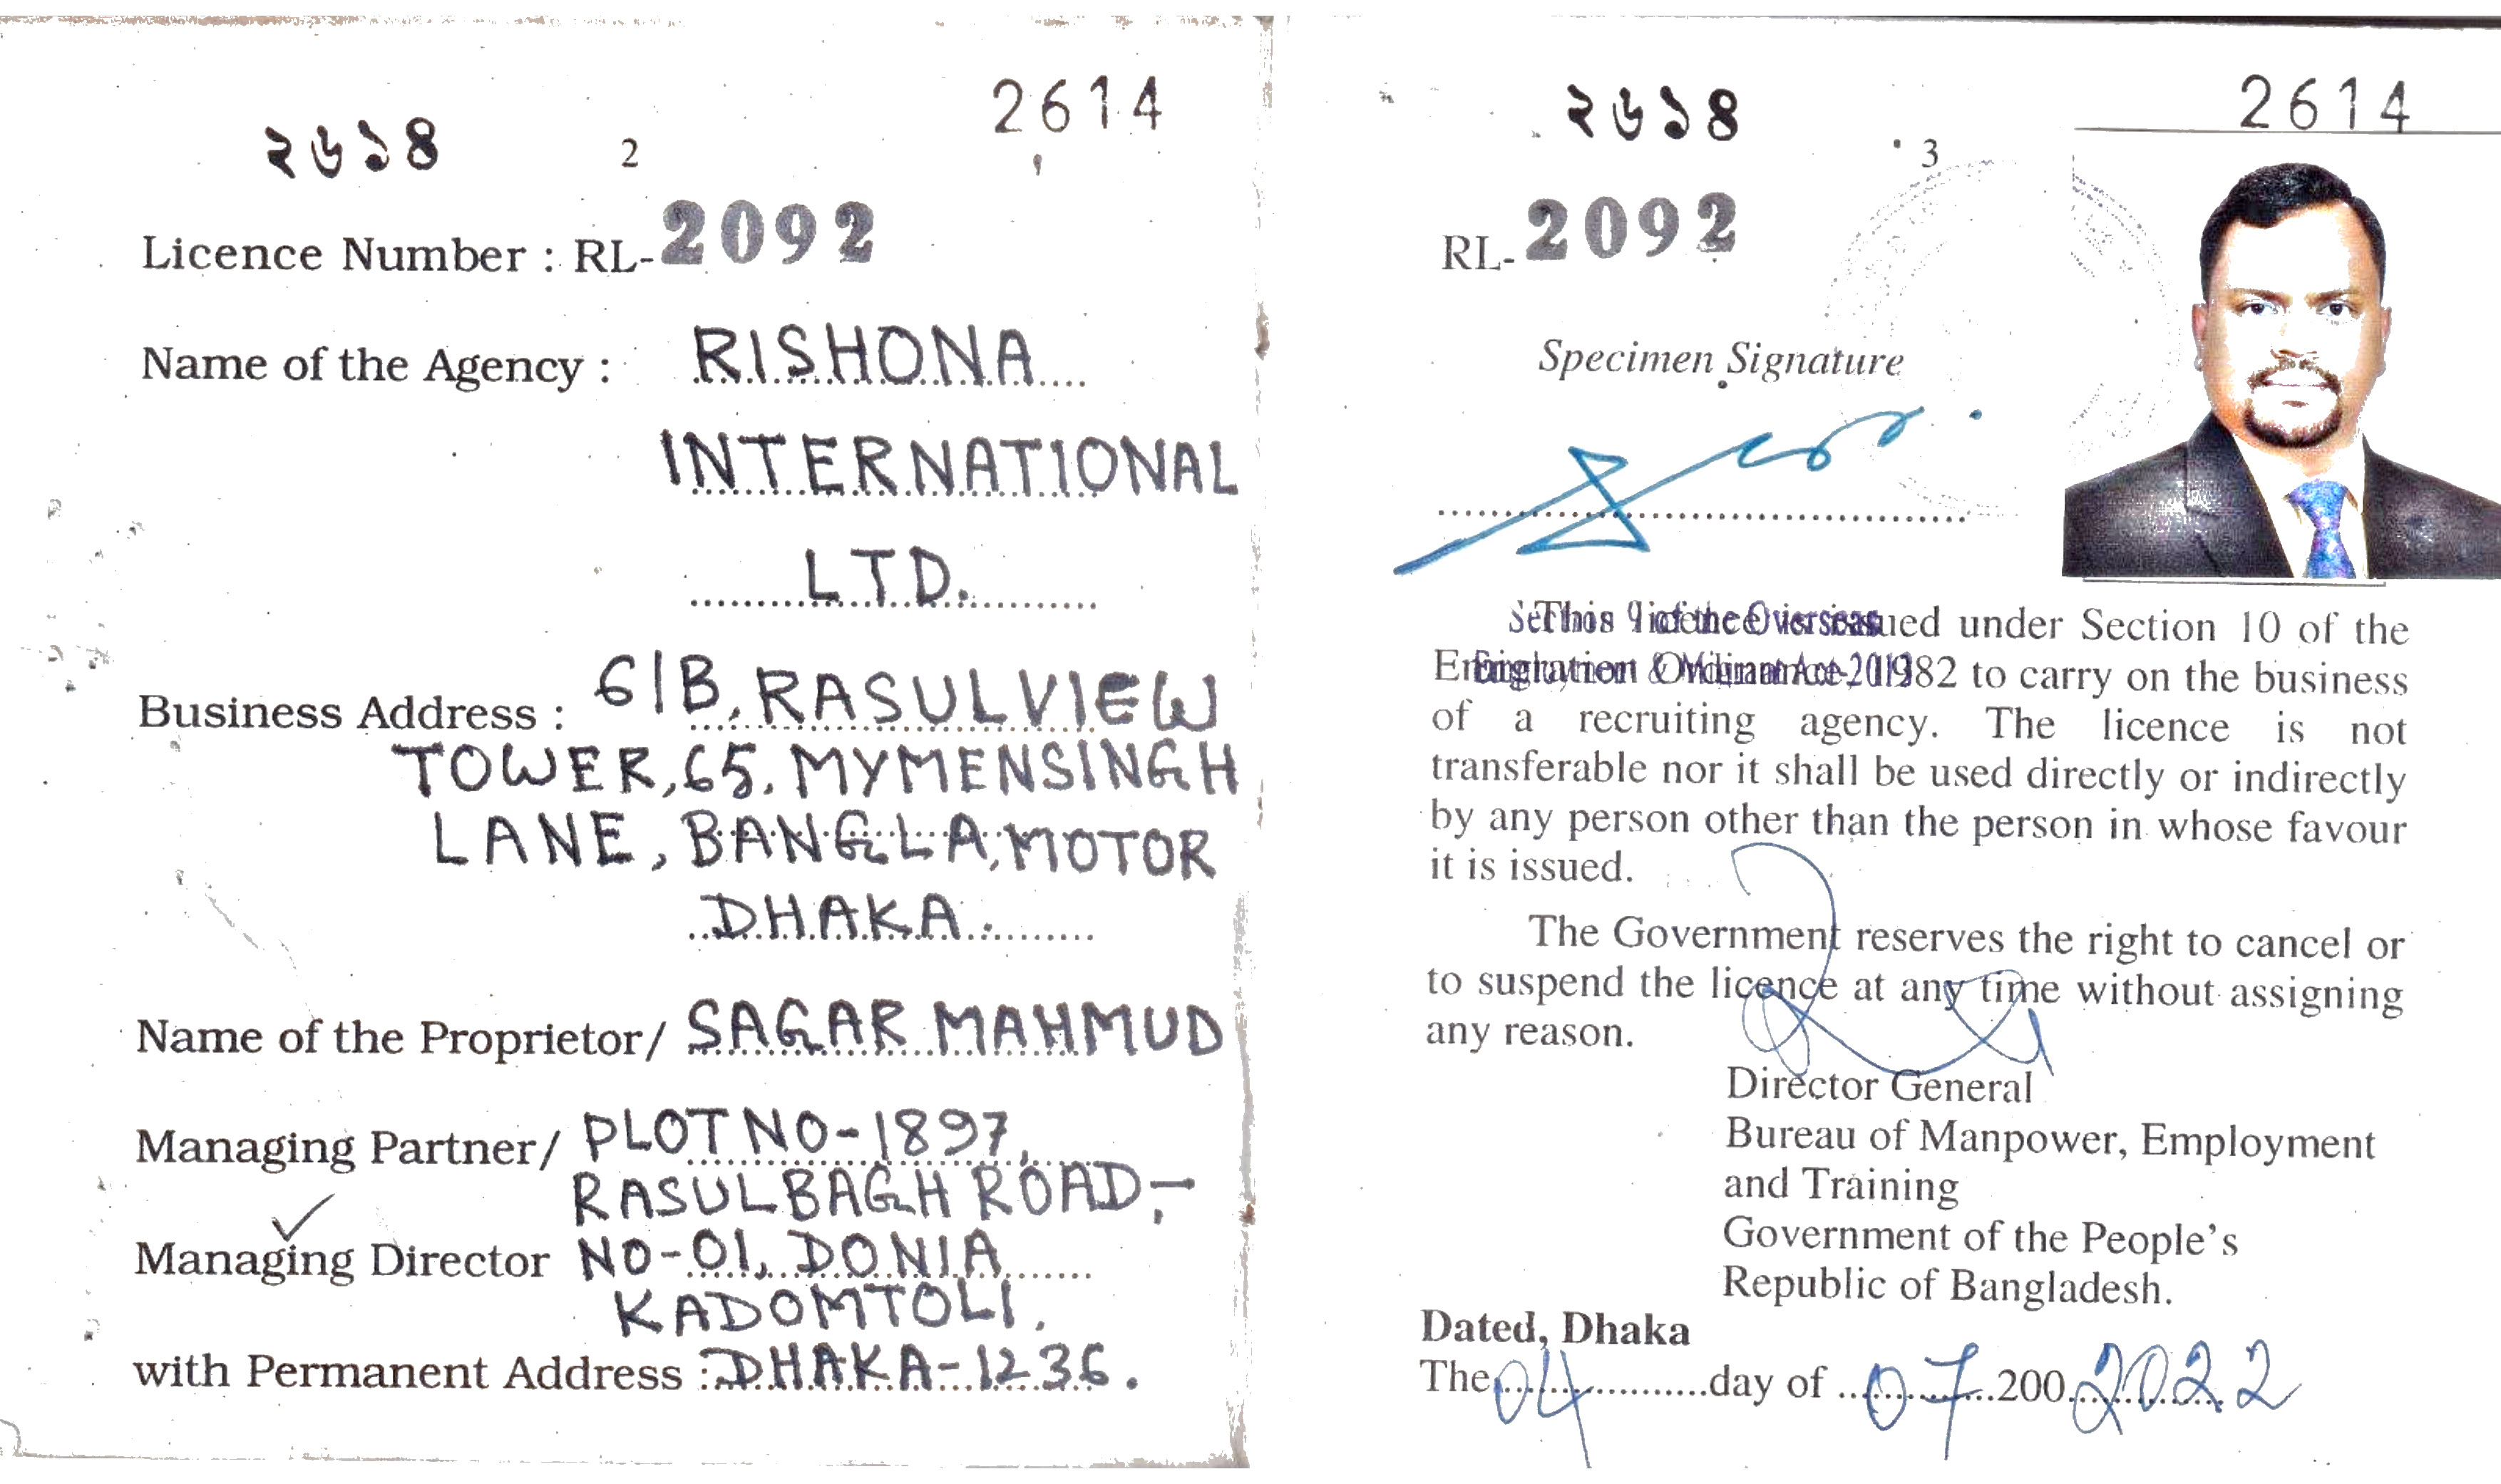 ২৬১৪
2
2614
Licence Number : RL-2092
Name of the Agency : RISHONA
INTERNATIONAL
LTD.
Business Address : 6/B, RASULVIEW
TOWER, 65, MYMENSINGH
LANE, BANGLA MOTOR
DHAKA.
Name of the Proprietor/ SAGAR MAHMUD
Managing Partner/ PLOT NO-1897,
RASULBAGH ROAD,-
Managing Director NO-01, DONIA
KADOMTOLI,
with Permanent Address : DHAKA-1236.
২৬১৪
3
2614
RL-2092
Specimen Signature
under Section 10 of the
1982 to carry on the business
of a recruiting agency. The licence is not
transferable nor it shall be used directly or indirectly
by any person other than the person in whose favour
it is issued.
The Government reserves the right to cancel or
to suspend the licence at any time without assigning
any reason.
Director General
Bureau of Manpower, Employment
and Training
Government of the People's
Republic of Bangladesh.
Dated, Dhaka
The 04 day of 07 200 2022